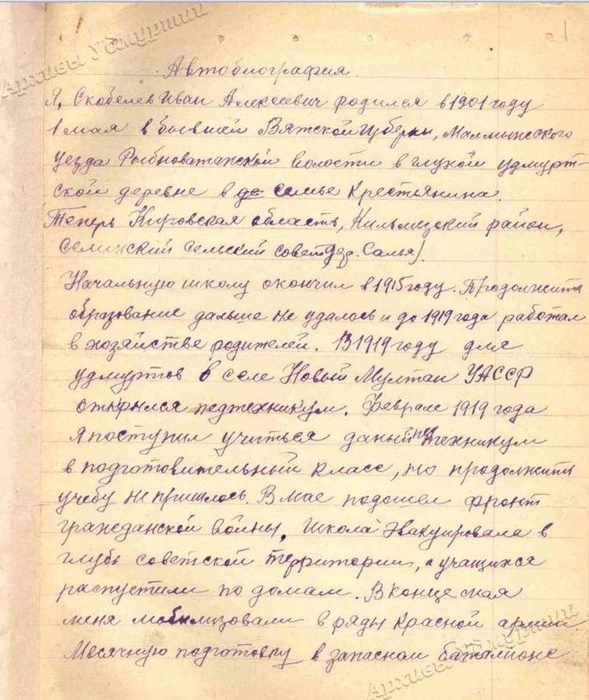 Архивы Удмуртии
1
Автобиография.
Я, Скобелев Иван Алексеевич родился в 1901 году
1 мая в бывшей Вятской губерни, Малмыжского
уезда Рыбноватажской волости в глухой удмурт-
ской деревне в семье крестьянина.
Теперь Кировская область, Кильмезский район,
Селинский сельский совет дер. Салья).
Начальную школу окончил в 1915 году. Продолжить
образование дальше не удалось и до 1919 года работал
в хозяйстве родителей. В 1919 году для
удмуртов в селе Новый Мултан УАССР
открылся педтехникум. Феврале 1919 года
я поступил учиться данный педтехникум
в подготовительный класс, но продолжить
учебу не пришлось. В мае подошел фронт
гражданской войны, школа эвакуировала в
глубь советской территории, а учащихся
распустили по домам. В конце мая
меня мобилизовали в ряды Красной армии
Месячную подготовку в запасном баталионе
Архивы Удмуртии